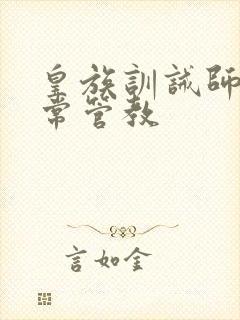 皇族訓誡師
常管教
言如金